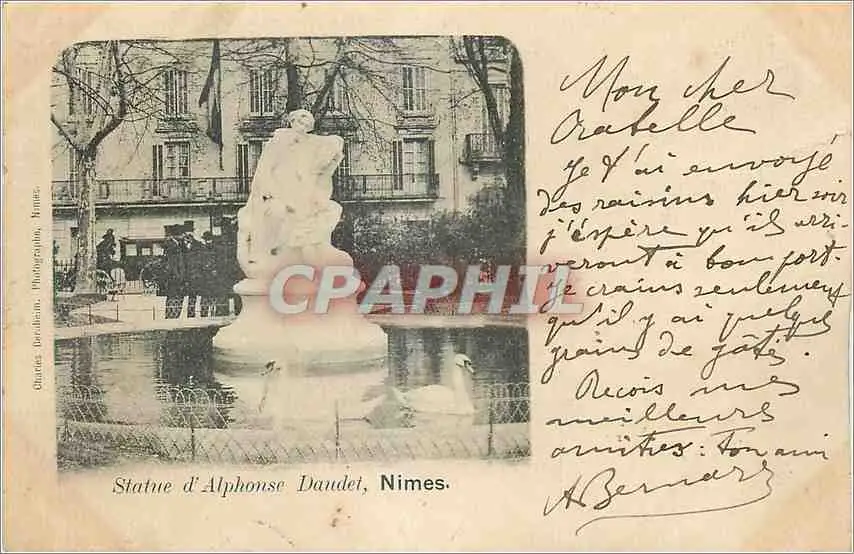 Mon cher
Oratelle
Je t'ai envoyé
des raisins hier soir
j'éspère qu'ils arri-
veront à bon port.
Je crains seulement
qu'il y ai quelques
grains de gâtés.
Reçois mes
meilleures
amitiés : Ton ami
A Bernard
CPAPHIL
Charles Bernheim, Photographe, Nimes.
Statue d'Alphonse Daudet, Nimes.